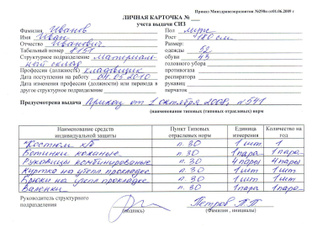 Приказ Минздравсоцразвития №290н от 01.06.2009 г
ЛИЧНАЯ КАРТОЧКА №
учета выдачи СИЗ
Фамилия Иванов
Имя Иван
Отчество Иванович
Табельный номер
Структурное подразделение Материальный склад
Профессия (должность) кладовщик
Дата поступления на работу 04.03.2010
Дата изменения профессии (должности) или перевода в
другое структурное подразделение
Пол муж.
Рост
Размер:
одежды 52
обуви 43
головного убора
противогаза
респиратора
рукавиц
перчаток
Предусмотрена выдача Приказ от 1 октября 2008, №541
(наименование типовых (отраслевых) норм
Наименование средств индивидуальной защиты | Пункт Типовых отраслевых норм | Единица измерения | Количество на год
Костюм х/б п. 30 1 шт 1
Ботинки кожаные п. 30 1 пара 1 пара
Рукавицы комбинированные п. 30 4 пары 4 пары
Куртка на утепл. прокладке п. 30 1 шт. 1 шт.
Брюки на утепл. прокладке п. 30 1 шт. 1 шт.
Валенки п. 30 1 пара 1 пара
Руководитель структурного
подразделения
(подпись)
Петров П.П.
(Фамилия, инициалы)